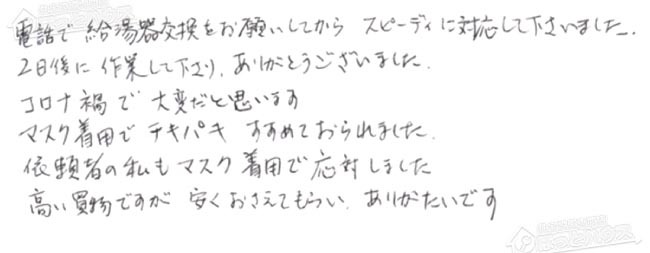 電話で 給湯器交換をお願いしてから スピーディに対応して下さいました.
2日後に 作業して下さり、ありがとうございました.
コロナ禍で 大変だと思います
マスク着用で テキパキ すすめておられました.
依頼者の私も マスク 着用で 応対しました
高い買物ですが 安くおさえてもらい、ありがたいです